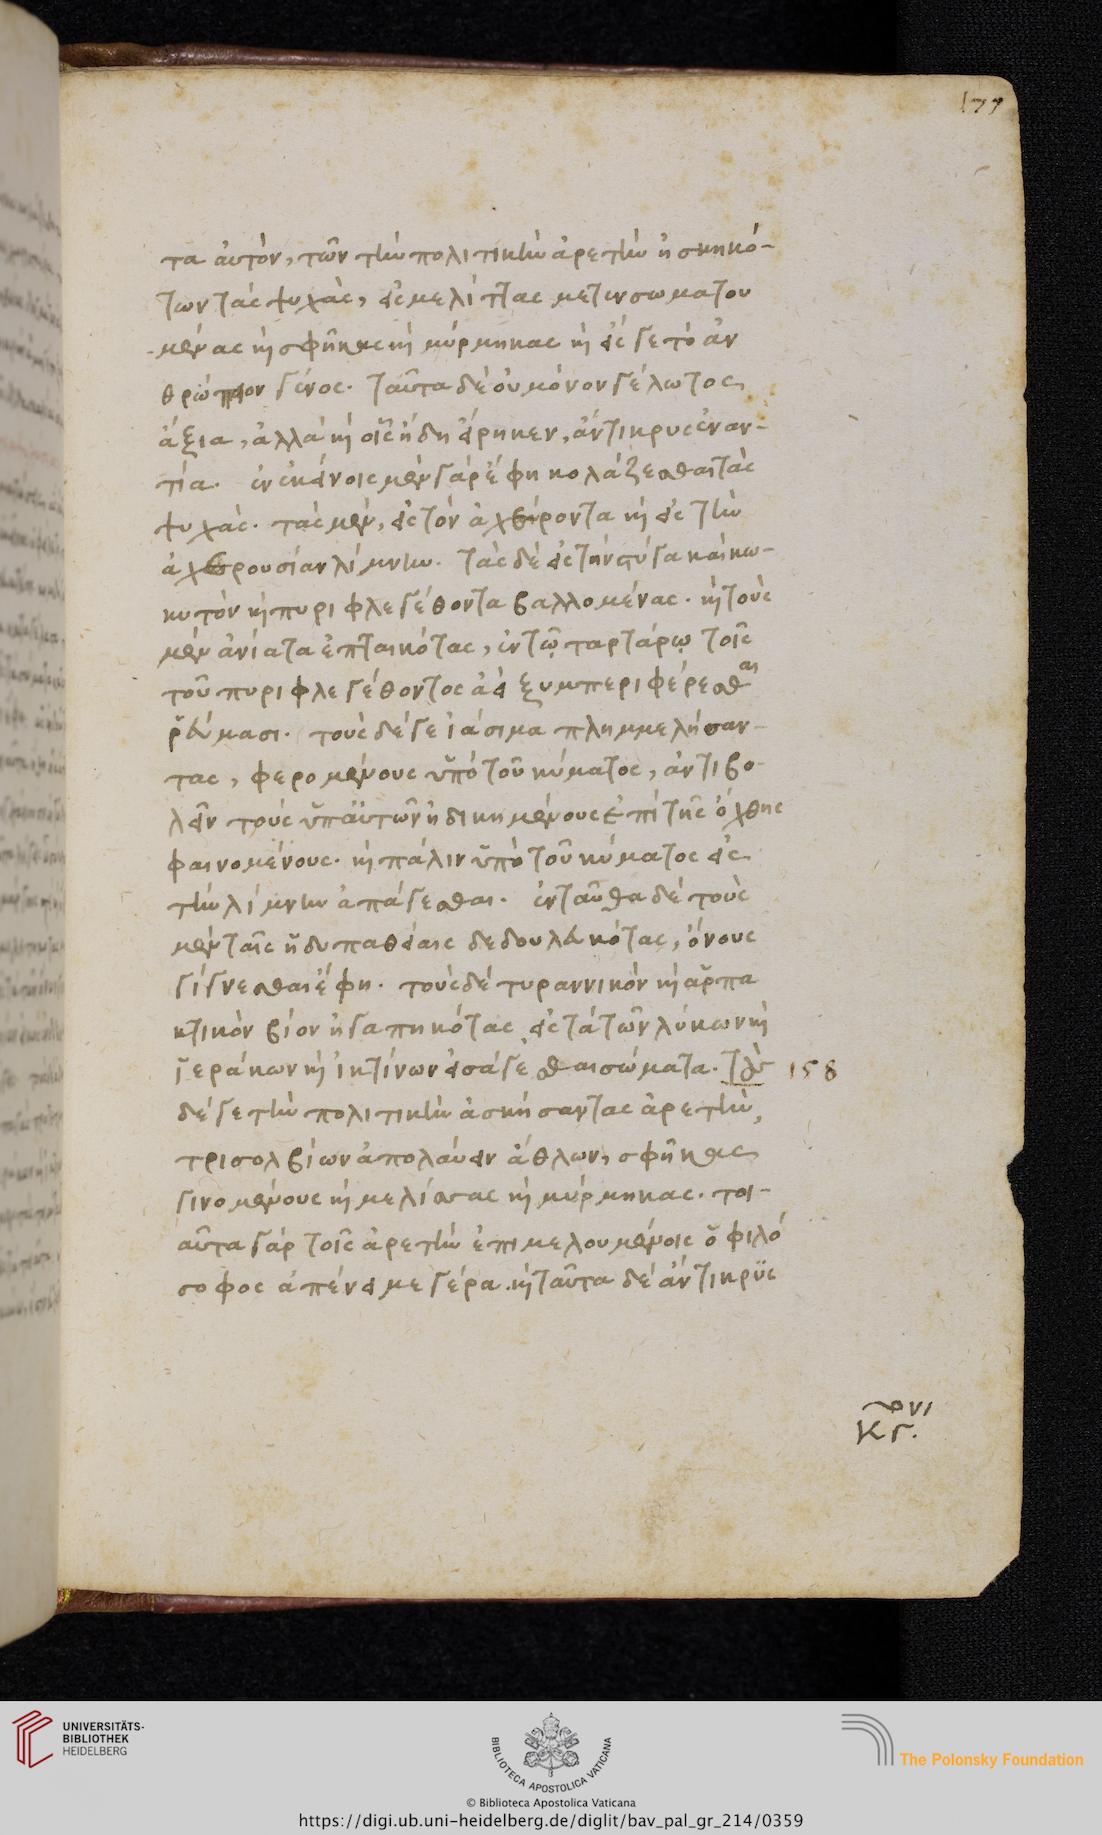 177
τα αὐτὸν, τῶν τὴν πολιτικὴν ἀρετὴν ἠσκηκό-
των τὰς ψυχὰς, εἰς μελίττας μετενσωματου
μένας καὶ σφῆκας καὶ μύρμηκας καὶ εἴς γε τὸ ἀν
θρώπειον γένος. ταῦτα δὲ οὐ μόνον γέλωτος
ἄξια, ἀλλὰ καὶ οἷς ἤδη εἴρηκεν, ἄντικρυς ἐναν-
τία. ἐν ἐκείνοις μὲν γὰρ ἔφη κολάζεσθαι τὰς
ψυχὰς. τὰς μὲν, εἰς τὸν ἀχέροντα καὶ εἰς τὴν
ἀχερουσίαν λίμνην. τὰς δὲ εἰς τὴν στύγα καὶ κω-
κυτὸν καὶ πυριφλεγέθοντα βαλλομένας. καὶ τοὺς
μὲν ἀνίατα ἐπταικότας, ἐν τῷ ταρτάρῳ τοῖς
τοῦ πυριφλεγέθοντος ἀεὶ ξυμπεριφέρεσθαι
ῥεύμασι. τοὺς δέ γε ἰάσιμα πλημμελήσαν-
τας, φερομένους ὑπὸ τοῦ κύματος, ἀντιβο-
λεῖν τοὺς ὑπ' αὐτῶν ἠδικημένους ἐπὶ τῆς ὄχθης
φαινομένους. καὶ πάλιν ὑπὸ τοῦ κύματος εἰς
τὴν λίμνην ἀπάγεσθαι. ἐνταῦθα δὲ τοὺς
μὲν ταῖς ἡδυπαθείαις δεδουλευκότας, ὄνους
γίγνεσθαι ἔφη. τοὺς δὲ τυραννικὸν καὶ ἁρπα
κτικὸν βίον ἠγαπηκότας εἰς τὰ τῶν λύκων καὶ
ἱεράκων καὶ ἰκτίνων εἰσάγεσθαι σώματα. τοὺς 158
δέ γε τὴν πολιτικὴν ἀσκήσαντας ἀρετὴν,
τρισολβίων ἀπολαύειν ἄθλων, σφῆκας
γινομένους καὶ μελίσσας καὶ μύρμηκας. τοι-
αῦτα γὰρ τοῖς ἀρετὴν ἐπιμελουμένοις ὁ φιλό
σοφος ἀπένειμε γέρα. καὶ ταῦτα δὲ ἄντικρυς
UNIVERSITÄTS-
BIBLIOTHEK
HEIDELBERG
BIBLIOTECA APOSTOLICA VATICANA
The Polonsky Foundation
© Biblioteca Apostolica Vaticana
https://digi.ub.uni-heidelberg.de/diglit/bav_pal_gr_214/0359